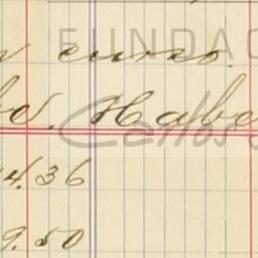 FUNDAC
curso
d. Habe
Carlos
4.36
9.50